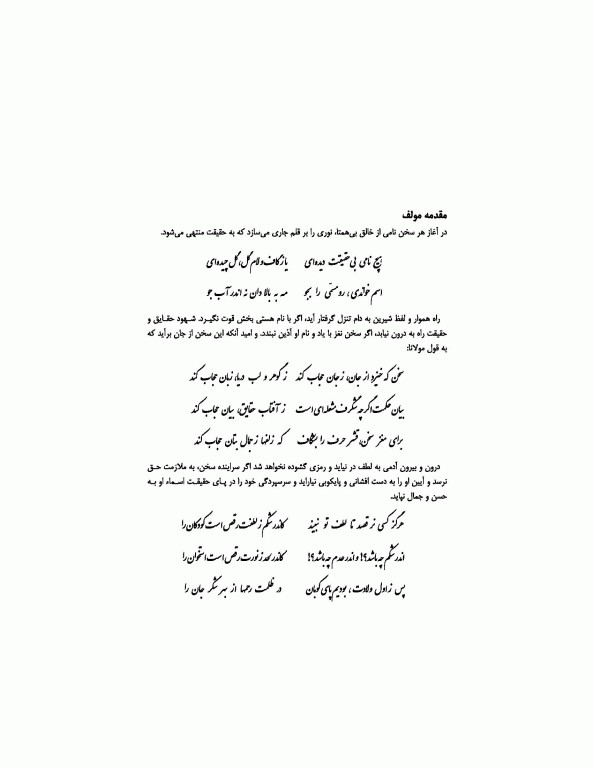 مقدمه مولف
در آغاز هر سخن نامی از خالق بی‌همتا، نوری را بر قلم جاری می‌سازد که به حقیقت منتهی می‌شود.
هیچ نامی بی حقیقت دیده‌ای یا ز گاف و لام گل، گل چیده‌ای
اسم خواندی، رو مسمّی را بجو مه به بالا دان نه اندر آب جو
راه هموار و لفظ شیرین به دام تنزل گرفتار آید، اگر با نام هستی بخش قوت نگیرد. شهود حقایق و
حقیقت راه به درون نیابد، اگر سخن نغز با یاد و نام او آذین نبندد. و امید آنکه این سخن از جان برآید که
به قول مولانا:
سخن که خیزد از جان، ز جان حجاب کند ز گوهر و لب دریا، زبان حجاب کند
بیان حکمت اگر چه شگرف مشعله‌ای است ز آفتاب حقایق، بیان حجاب کند
برای مغز سخن، قشر حرف را بشکاف که زلفها ز جمال بتان حجاب کند
درون و بیرون آدمی به لطف در نیاید و رمزی گشوده نخواهد شد اگر سراینده سخن، به ملازمت حق
نرسد و آیین او را به دست افشانی و پایکوبی نیاراید و سرسپردگی خود را در پای حقیقت اسماء او به
حسن و جمال نیاید.
هرگز کسی نرقصد تا لطف تو نبیند کاندر شکم ز لطفت رقص است کودکان را
اندر شکم چه باشد؟! و اندر عدم چه باشد؟! کاندر لحد ز نورت رقص است استخوان را
پس ز اول ولادت، بودیم پای کوبان در ظلمت رحمها از بهر شکر جان را